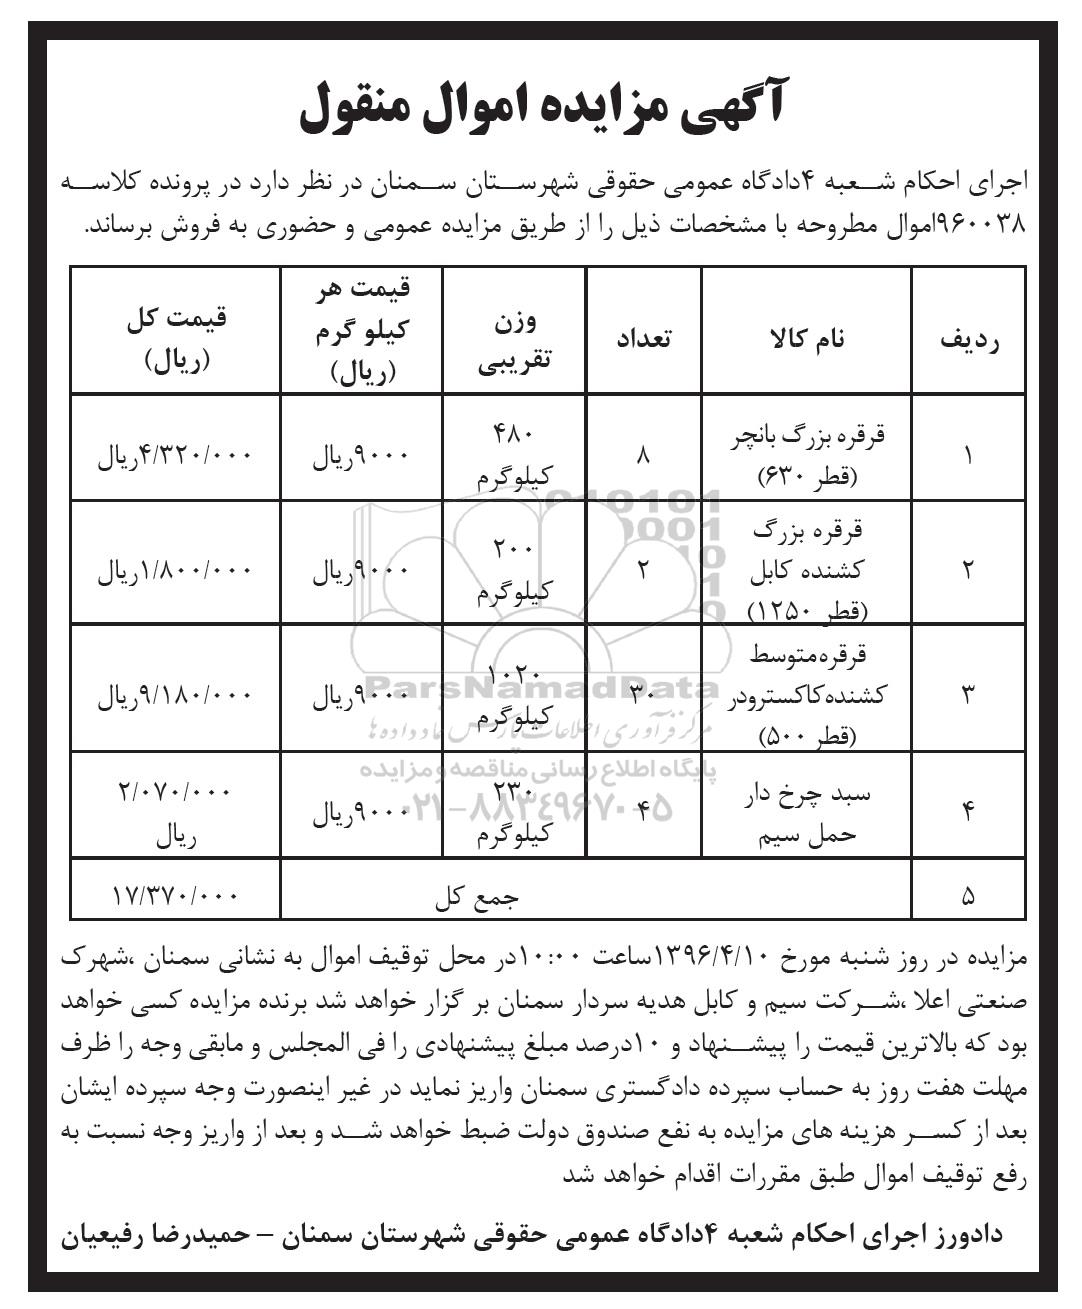 آگهی مزایده اموال منقول
اجرای احکام شعبه ۴دادگاه عمومی حقوقی شهرستان سمنان در نظر دارد در پرونده کلاسه
۹۶۰۰۳۸اموال مطروحه با مشخصات ذیل را از طریق مزایده عمومی و حضوری به فروش برساند.
ردیف
نام کالا
تعداد
وزن
تقریبی
قیمت هر
کیلو گرم
(ریال)
قیمت کل
(ریال)
۱
قرقره بزرگ بانچر
(قطر ۶۳۰)
۸
۴۸۰
کیلوگرم
۹۰۰۰ریال
۴/۳۲۰/۰۰۰ریال
۲
قرقره بزرگ
کشنده کابل
(قطر ۱۲۵۰)
۲
۲۰۰
کیلوگرم
۹۰۰۰ریال
۱/۸۰۰/۰۰۰ریال
۳
قرقره‌متوسط
کشنده‌کاکسترودر
(قطر ۵۰۰)
۳۰
۱۰۲۰
کیلوگرم
۹۰۰۰ریال
۹/۱۸۰/۰۰۰ریال
۴
سبد چرخ دار
حمل سیم
۴
۲۳۰
کیلوگرم
۹۰۰۰ریال
۲/۰۷۰/۰۰۰
ریال
۵
جمع کل
۱۷/۳۷۰/۰۰۰
ParsNamadData
مرکز فرآوری اطلاعات پارس نماد داده‌ها
پایگاه اطلاع رسانی مناقصه و مزایده
۰۲۱-۸۸۳۴۹۶۷۰-۵
مزایده در روز شنبه مورخ ۱۳۹۶/۴/۱۰ساعت ۱۰:۰۰در محل توقیف اموال به نشانی سمنان ،شهرک
صنعتی اعلا ،شرکت سیم و کابل هدیه سردار سمنان بر گزار خواهد شد برنده مزایده کسی خواهد
بود که بالاترین قیمت را پیشنهاد و ۱۰درصد مبلغ پیشنهادی را فی المجلس و مابقی وجه را ظرف
مهلت هفت روز به حساب سپرده دادگستری سمنان واریز نماید در غیر اینصورت وجه سپرده ایشان
بعد از کسر هزینه های مزایده به نفع صندوق دولت ضبط خواهد شد و بعد از واریز وجه نسبت به
رفع توقیف اموال طبق مقررات اقدام خواهد شد
دادورز اجرای احکام شعبه ۴دادگاه عمومی حقوقی شهرستان سمنان – حمیدرضا رفیعیان